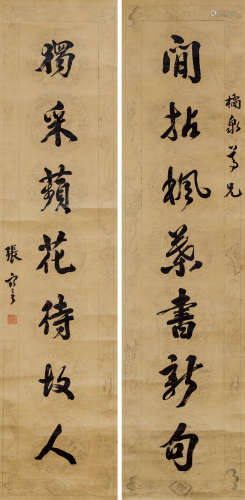 橘泉尊兄
閒拈楓葉書新句
獨采蘋花待故人
張